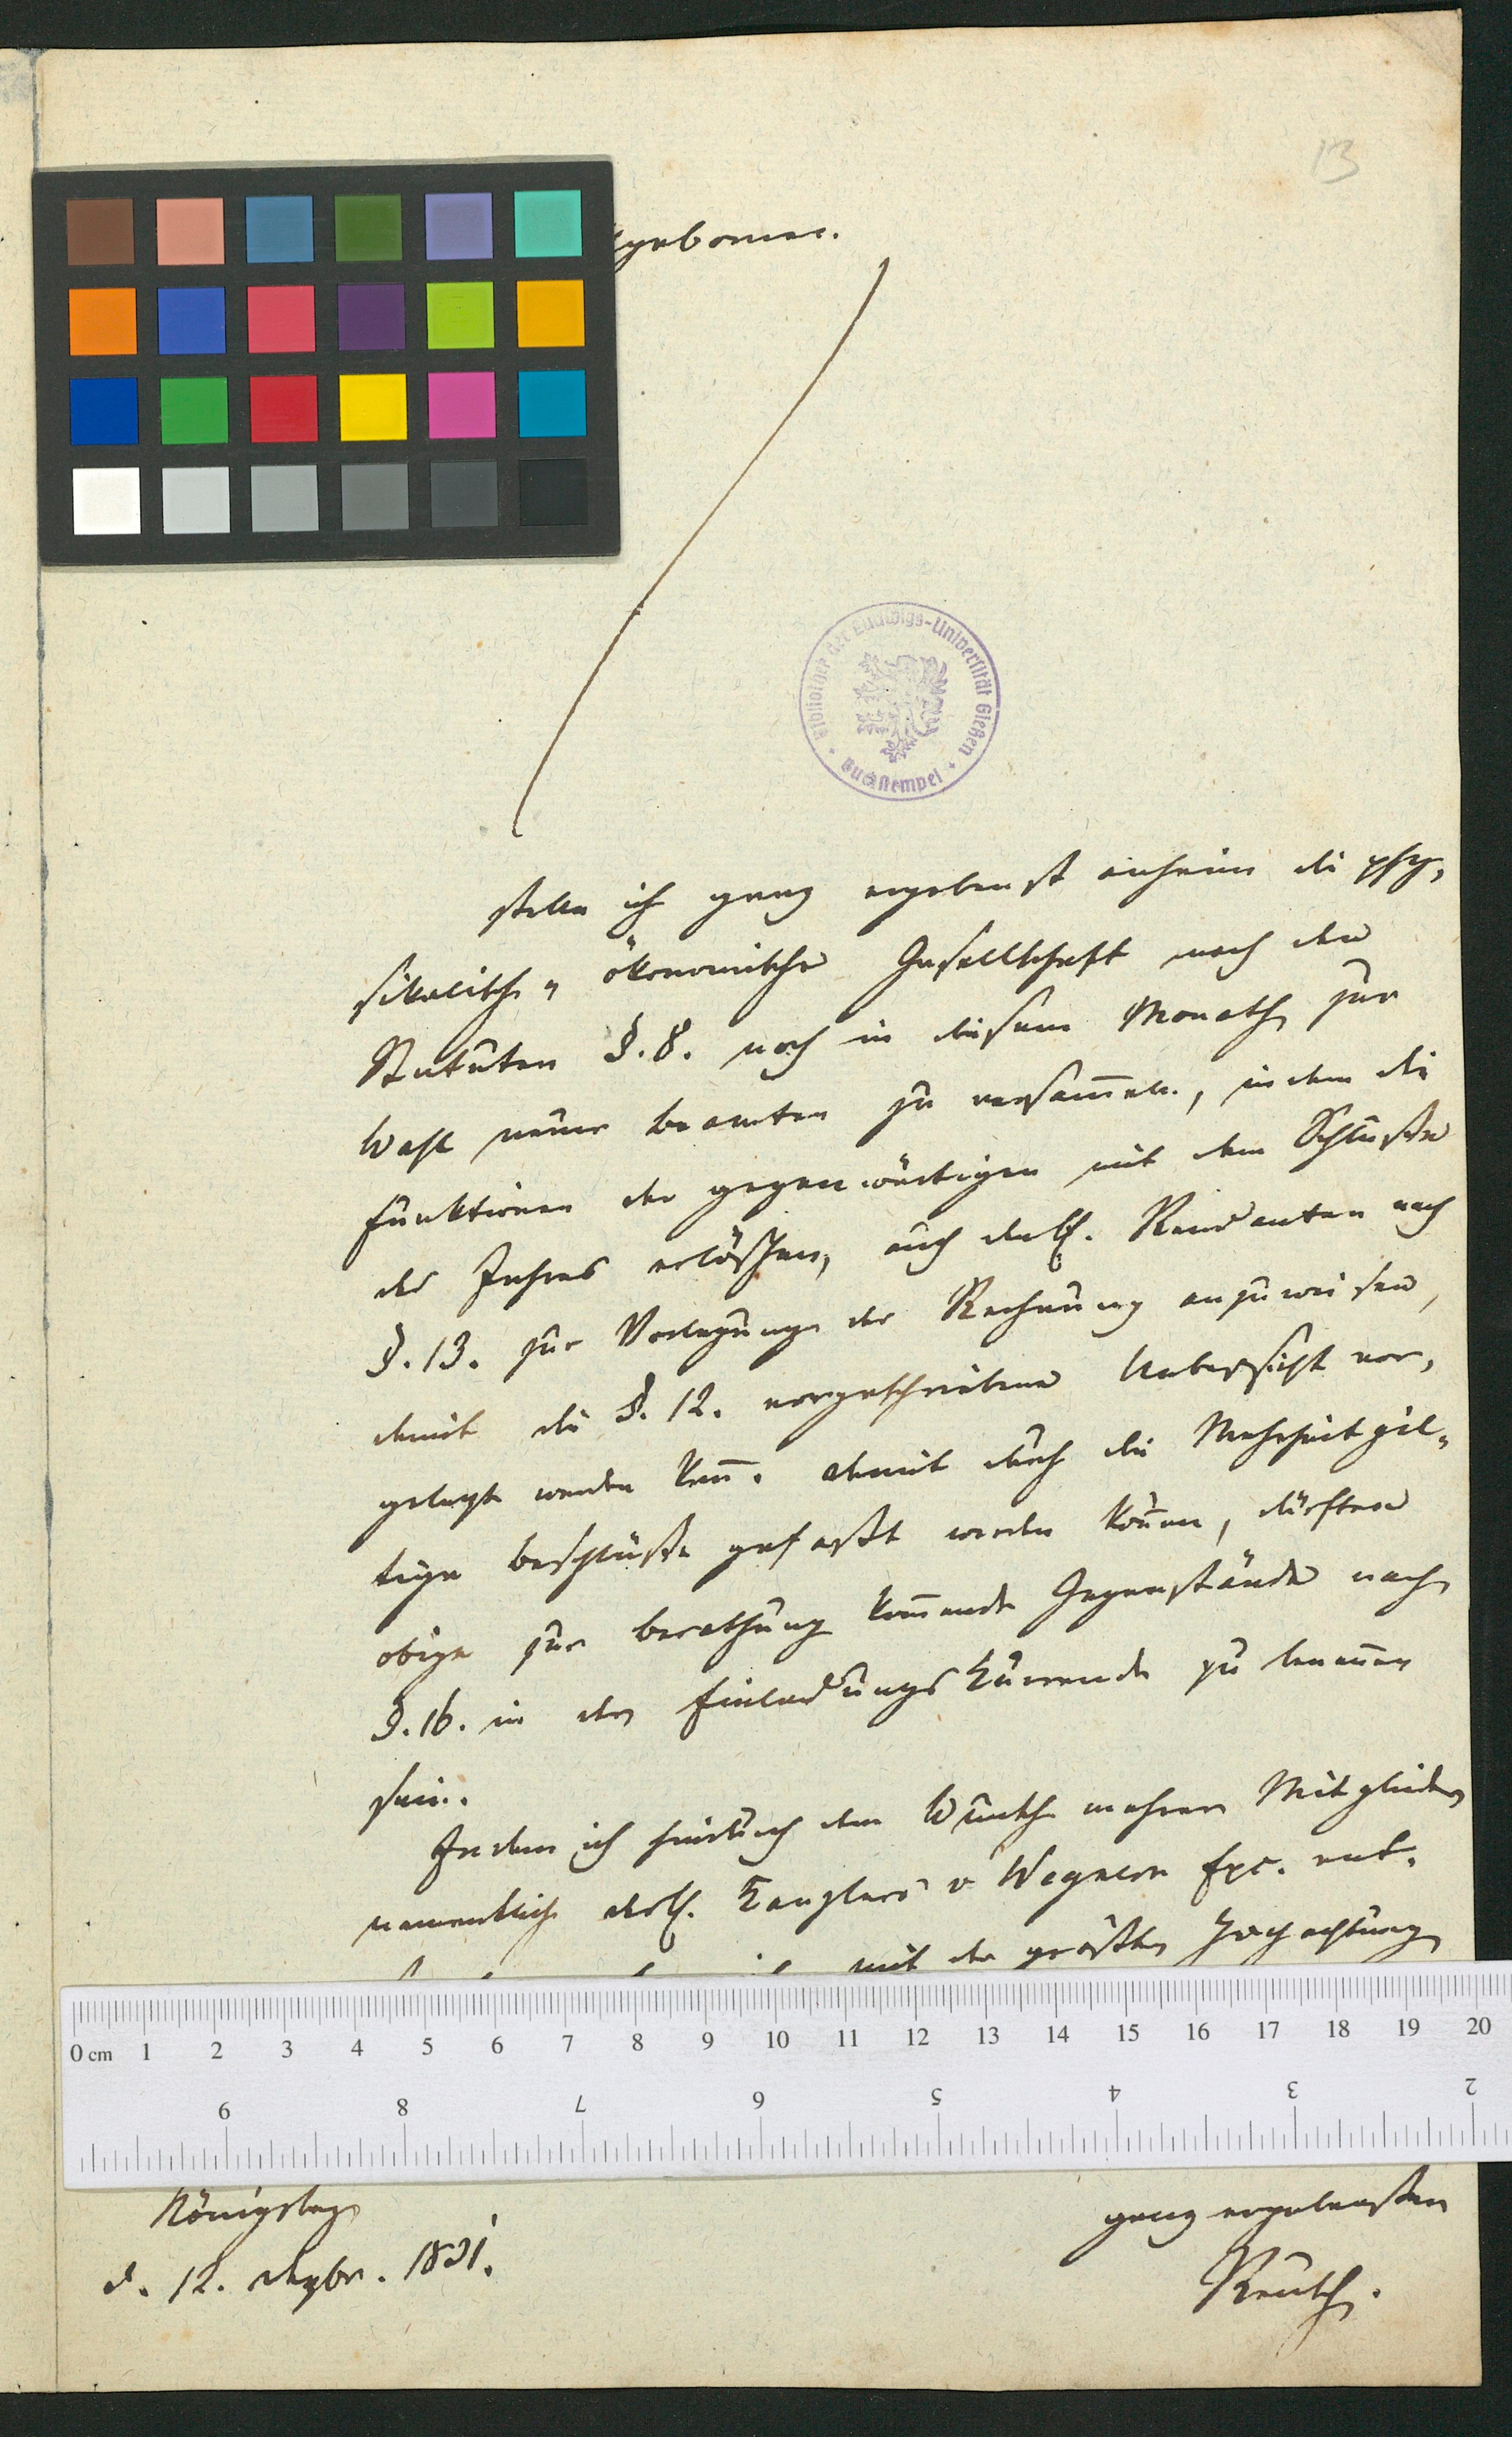 13
gebornen.
Bibliothek der Ludwigs-Universität Gießen
Buchstempel
stelle ich ganz ergebenst anheim die phy-
sikalisch-ökonomische Gesellschaft nach den
Statuten §. 8. noch in diesem Monath zur
Wahl neuer Beamten zu versam̄eln, indem die
Funktionen der gegenwärtigen mit dem Schlusse
des Jahres erlöschen, auch den H. Rendanten nach
§. 13. zur Vorlegung der Rechnung anzuweisen,
damit die §. 12. vorgeschriebene Uebersicht vor-
gelegt werden kan̄. Damit durch die Mehrheit gül-
tige Beschlüsse gefaßt werden kön̄en, dürften
obige zur Berathung kom̄ende Gegenstände nach
§. 16. in der Einladungs Kurrende zu benen̄en
sein.
Indem ich hiedurch dem Wunsche mehrer Mitglieder
namentlich des H. Kanzlers v Wegnern Exc. ent-
mit der größten Hochachtung
0 cm 1 2 3 4 5 6 7 8 9 10 11 12 13 14 15 16 17 18 19 20
9 8 7 6 5 4 3 2
Königsberg
d. 12. Dezbr. 1831.
ganz ergebenster